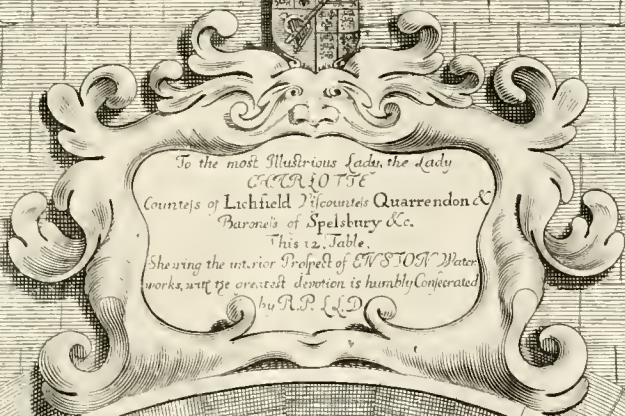 To the most Illustrious Lady, the Lady
CHARLOTTE
Counteſs of Lichfield Viſcounteſs Quarrendon &
Baroneſs of Spelsbury &c.
This 12. Table.
Shewing the interior Proſpect of ENSTON Water
works, with the greatest devotion is humbly Conſecrated
by R.P. LLD